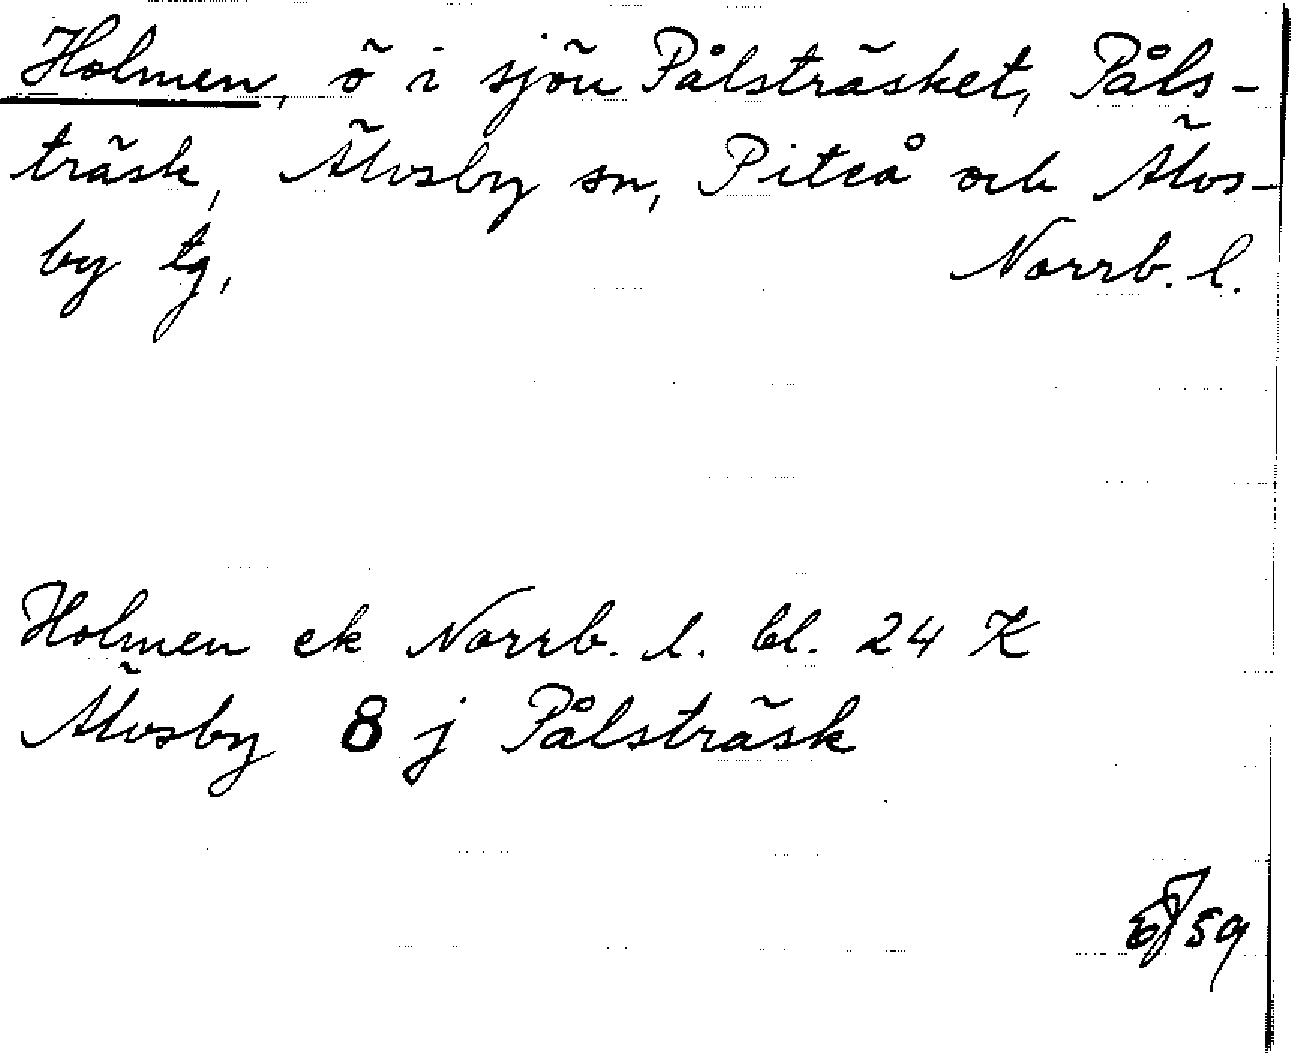 Holmen, ö i sjön Pålsträsket, Påls-
träsk, Älvsby sn, Piteå och Älvs-
by tg, Norrb. l.
Holmen ek Norrb. l. bl. 24 K
Älvsby 8 j Pålsträsk
59